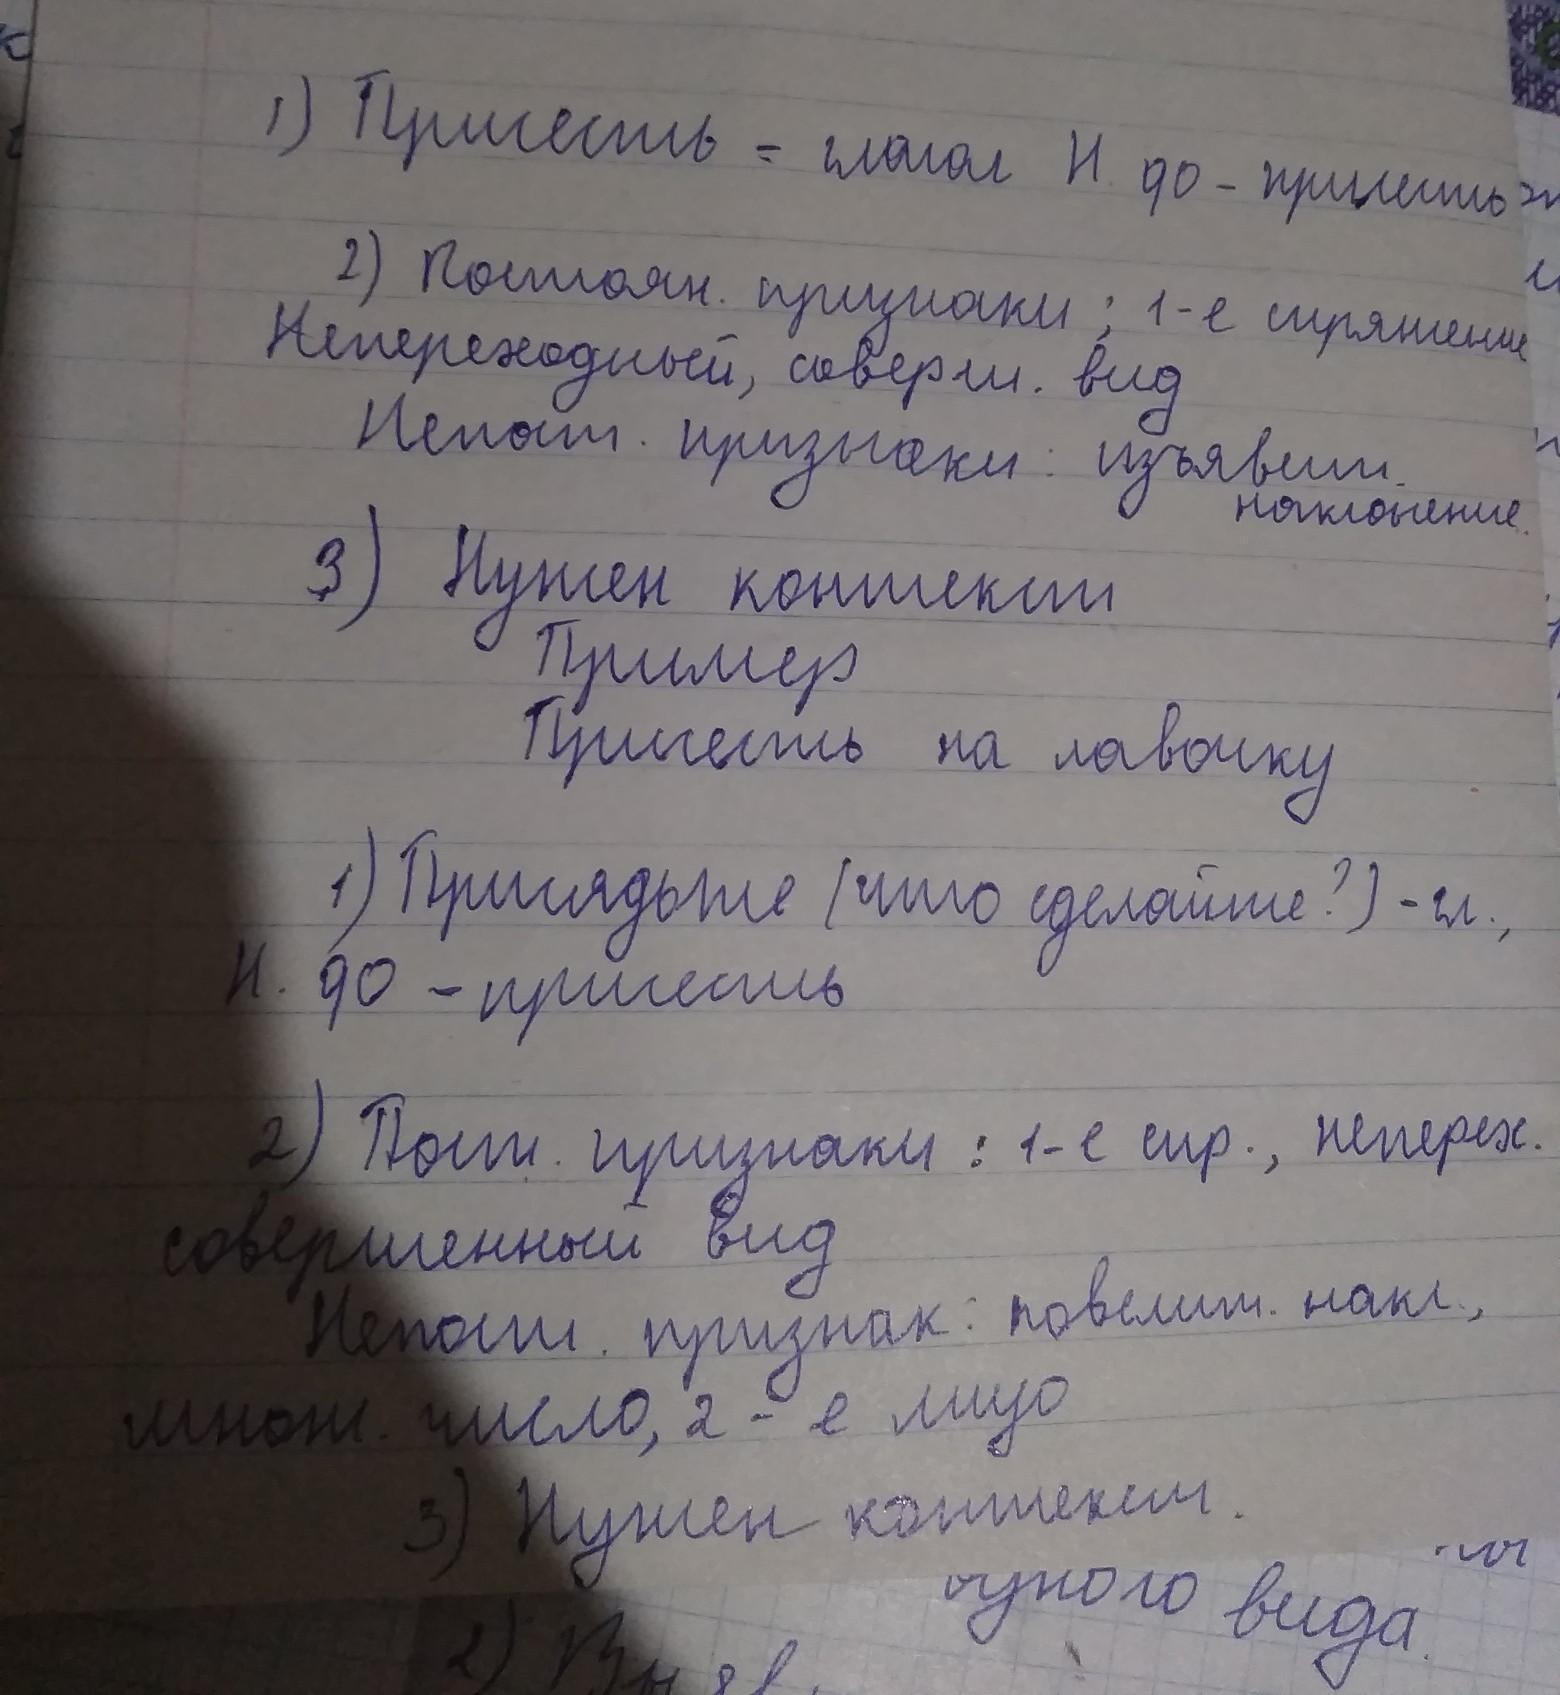 1) Присесть = глагол Н. ф0 - присесть
2) Постоян. признаки ; 1-е спряжение
Непереходный, соверш. вид
Непост. признаки : изъявит.
наклонение.
3) Нужен контекст
Пример
Присесть на лавочку
1) Присядьте (что сделайте?) - гл.,
Н. ф0 - присесть
2) Пост. признаки : 1-е спр., неперех.
совершенный вид
Непост. признак : повелит. накл.,
множ. число, 2 - е лицо
3) Нужен контекст.
вида.
2)